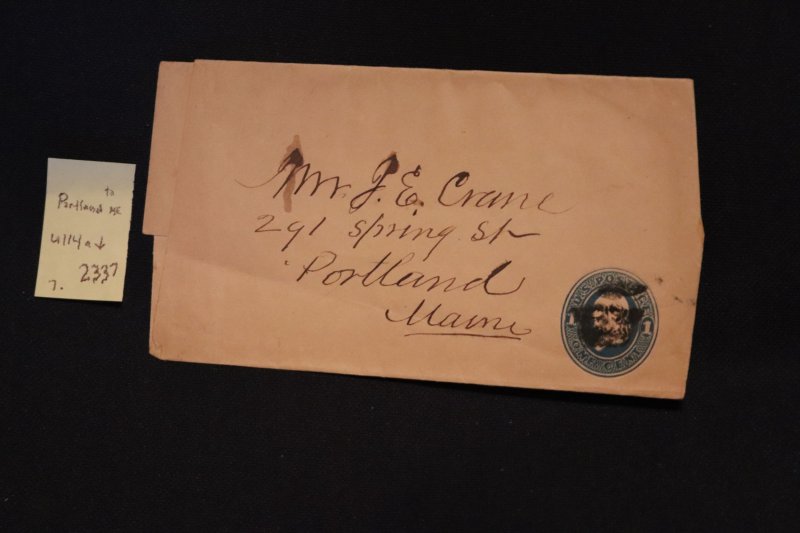 to
Portland ME
U114a
7. 2337
Mr. J. E. Crane
291 Spring St
Portland
Maine
U.S. POSTAGE
1 1
ONE CENT